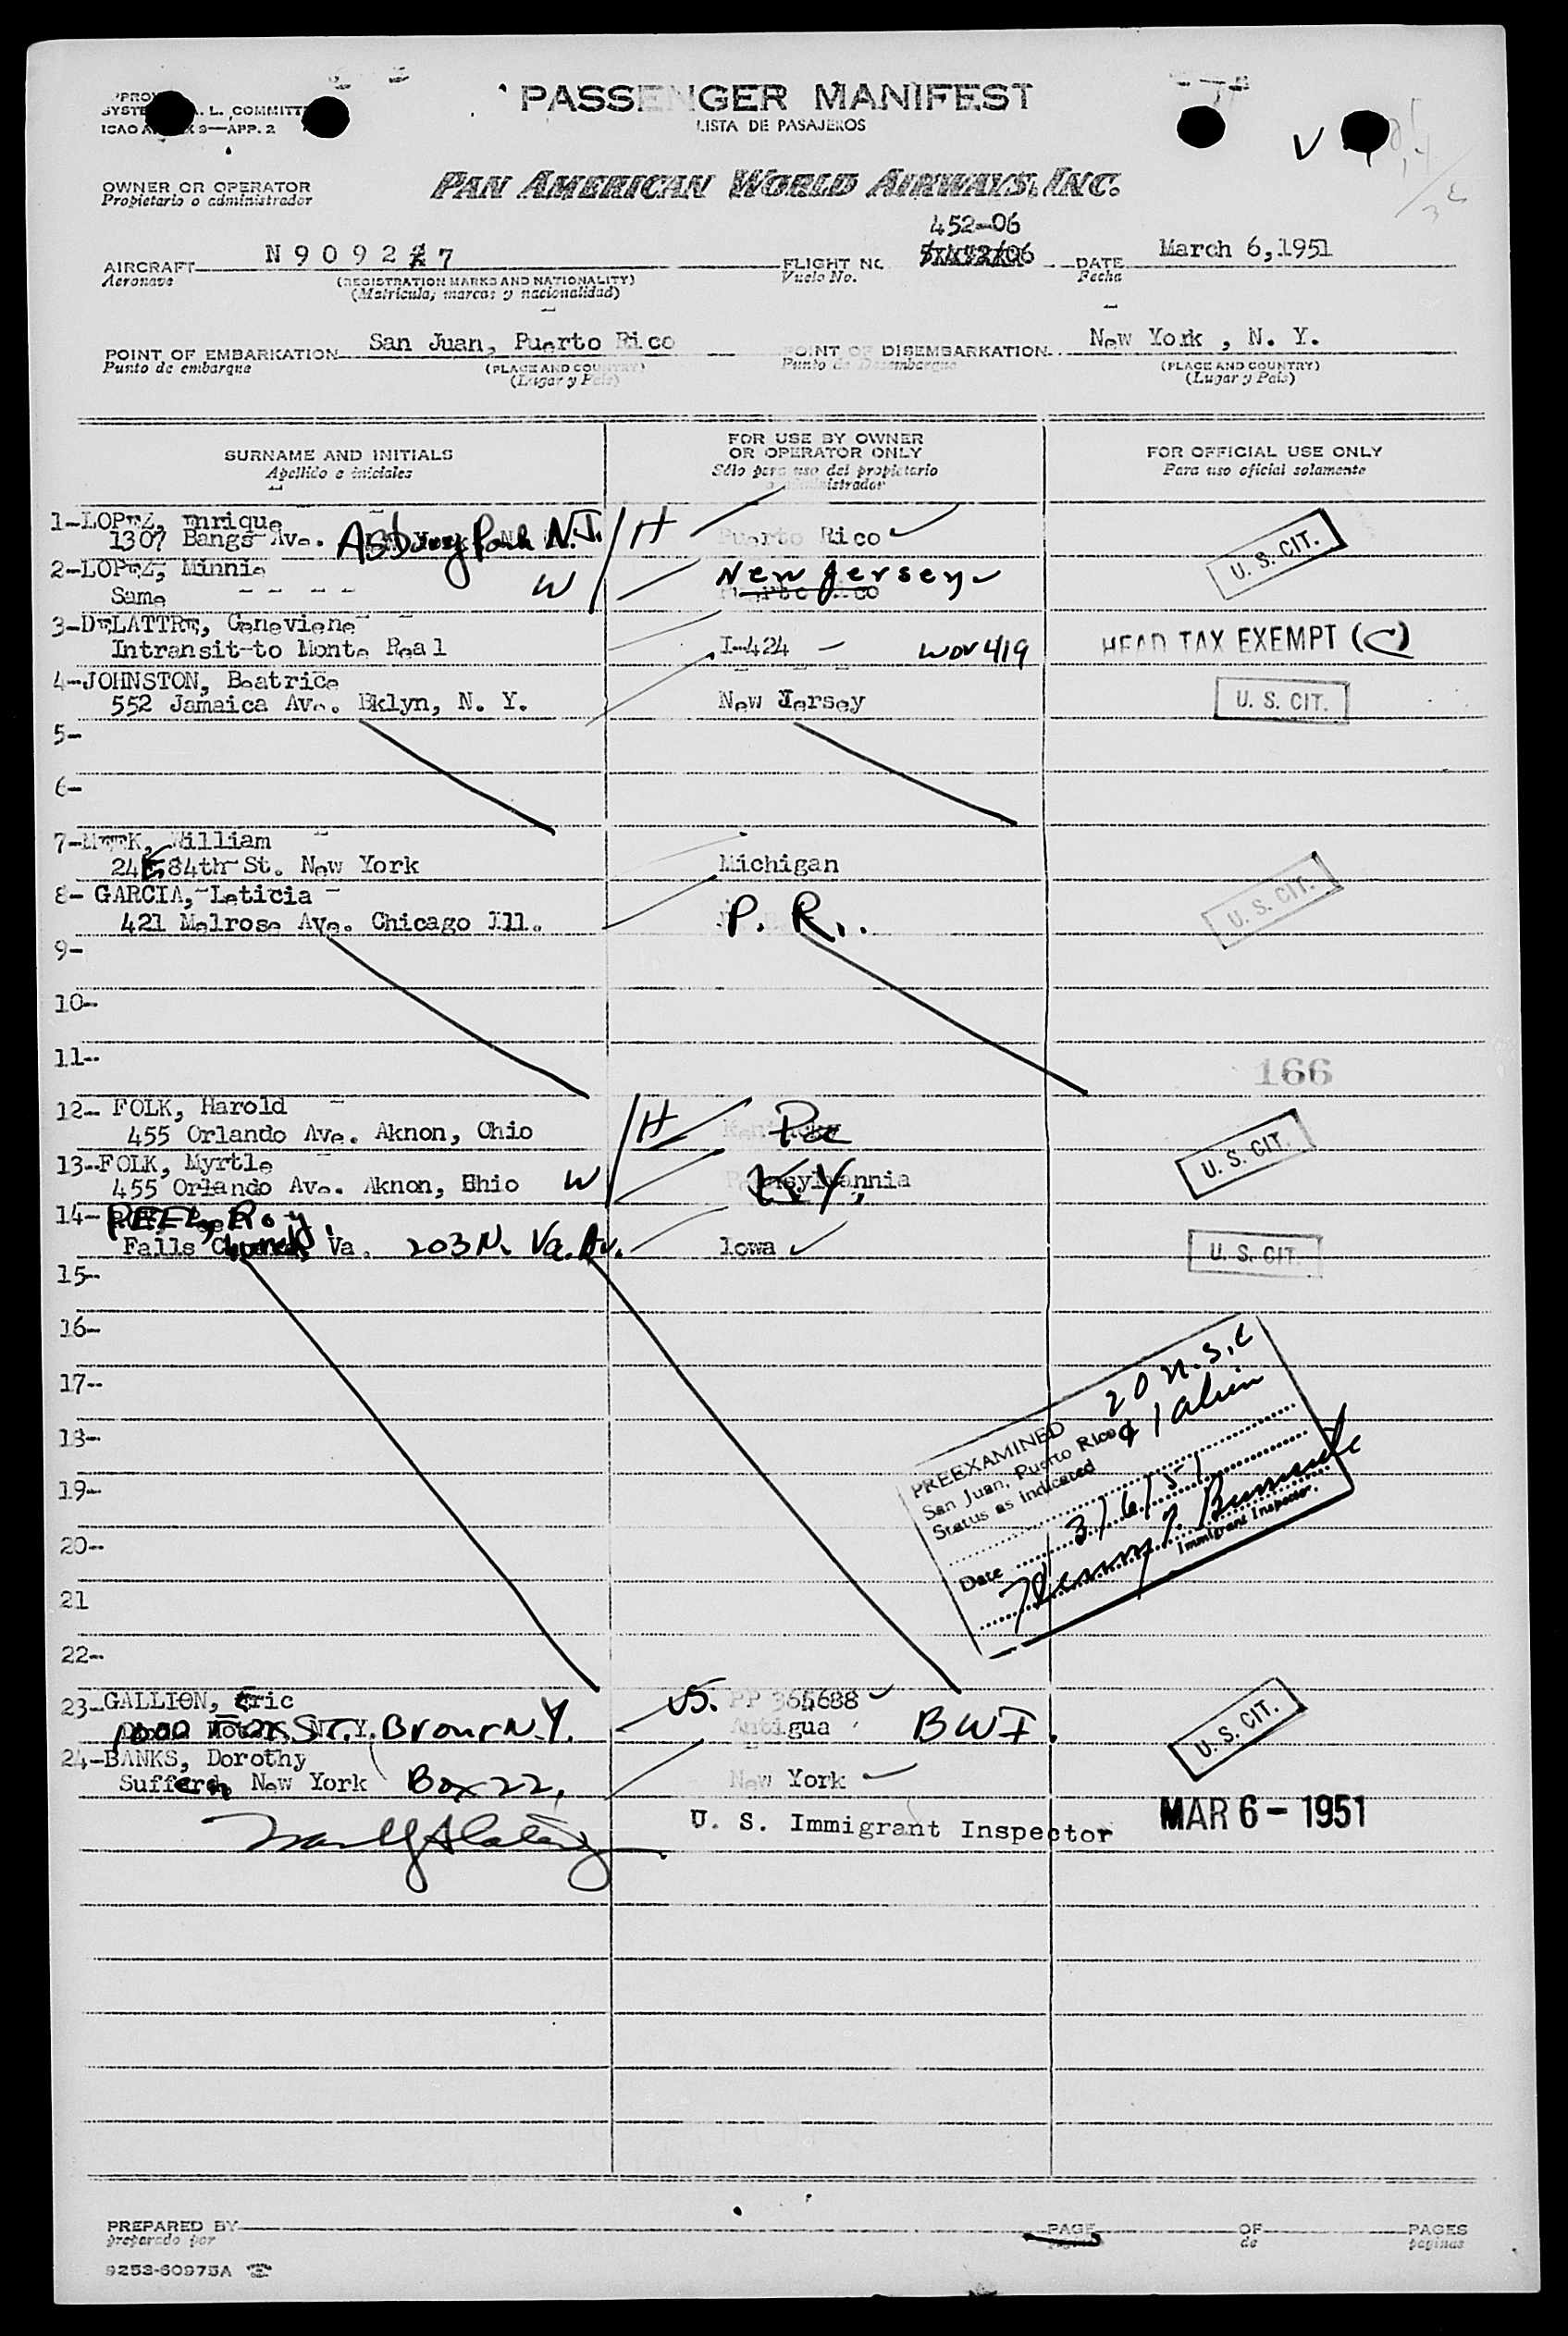 PASSENGER MANIFEST
LISTA DE PASAJEROS
ICAO
9—APP. 2
OWNER OR OPERATOR
Propietario o administrador
PAN AMERICAN WORLD AIRWAYS, INC.
452-06
AIRCRAFT N 9 0 9 2 7 FLIGHT NO. DATE March 6, 1951
Aeronave (REGISTRATION MARKS AND NATIONALITY) Vuelo No. Fecha
(Matricula, marcas y nacionalidad)
POINT OF EMBARKATION San Juan, Puerto Rico POINT OF DISEMBARKATION New York , N. Y.
Punto de embarque (PLACE AND COUNTRY) Punto de Desembarque (PLACE AND COUNTRY)
(Lugar y Pais) (Lugar y Pais)
SURNAME AND INITIALS FOR USE BY OWNER OR OPERATOR ONLY FOR OFFICIAL USE ONLY
Apellido e iniciales Sólo para uso del propietario o administrador Para uso oficial solamente
1-LOPEZ, Enrique H
1307 Bangs Ave. Asbury Park N.J. Puerto Rico U. S. CIT.
2-LOPEZ, Minnie W New Jersey
Same - - - - Puerto Rico
3-DELATTRE, Geneviene
Intransit-to Monte Real I-424 HEAD TAX EXEMPT (C)
4-JOHNSTON, Beatrice
552 Jamaica Ave. Bklyn, N. Y. New Jersey U. S. CIT.
5-
6-
7-MEEK, William
24 E 84th St. New York Michigan
8- GARCIA, Leticia U. S. CIT.
421 Melrose Ave. Chicago Ill. P. R.
9-
10-
11-
166
12- FOLK, Harold H
455 Orlando Ave. Aknon, Ohio Kentucky Pa
13-FOLK, Myrtle U. S. CIT.
455 Orlando Ave. Aknon, Ohio W Pennsylvannia KY.
14- PEEL, Roy
Falls Church, Va. 203 N. Va. Av. Iowa U. S. CIT.
15-
16-
17-
18-
19-
20-
21
22-
PREEXAMINED 20 U.S.C
San Juan, Puerto Rico & 1 alien
Status as indicated
Date 3/6/51
Immigrant Inspector.
23-GALLION, Eric U.S. PP 365688
1000 Fox ST. Bronx N.Y. Antigua BWI. U. S. CIT.
24-BANKS, Dorothy
Suffern, New York Box 22, New York
U. S. Immigrant Inspector MAR 6 - 1951
PREPARED BY PAGE OF PAGES
preparado por de paginas
9253-60975A